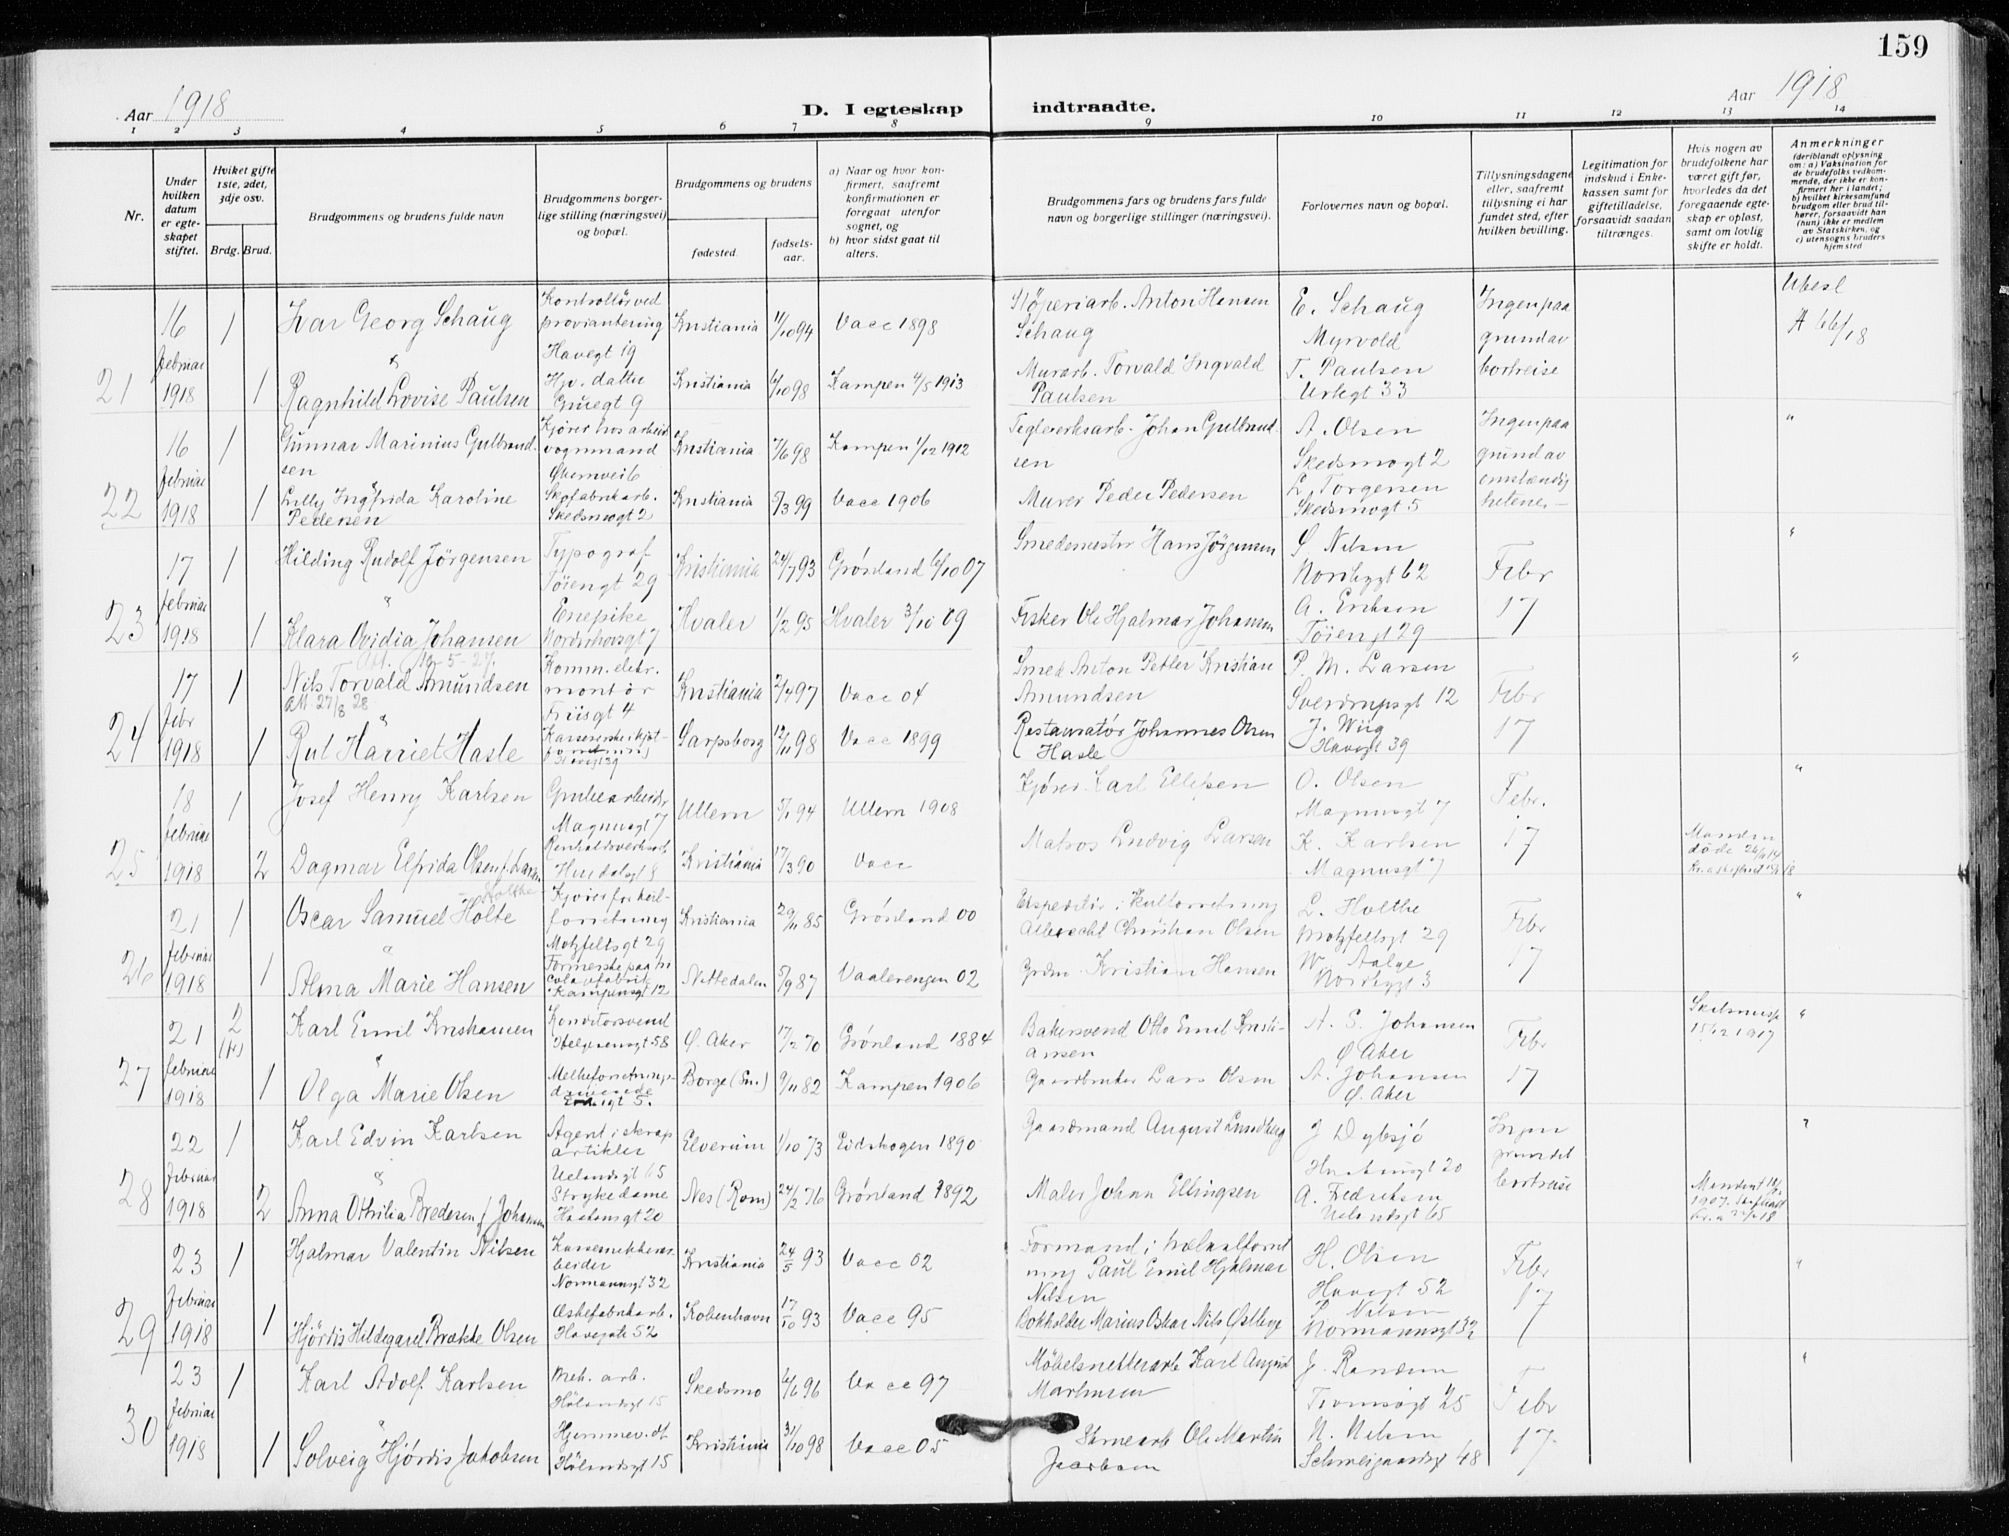 159
Aar 1918
D. I egteskap indtraadte.
Aar 1918
1 2 3 4 5 6 7 8 9 10 11 12 13 14
Nr.
Under hvilken datum er egteskapet stiftet.
Hvilket gifte 1ste, 2det, 3dje osv.
Brdg. Brud.
Brudgommens og brudens fulde navn
Brudgommens borgerlige stilling (næringsvei) og bopæl.
Brudgommens og brudens
fødested.
fødselsaar.
a) Naar og hvor konfirmert, saafremt konfirmationen er foregaat utenfor sognet, og
b) hvor sidst gaat til alters.
Brudgommens fars og brudens fars fulde navn og borgerlige stillinger (næringsvei).
Forlovernes navn og bopæl.
Tillysningsdagene eller, saafremt tillysning ei har fundet sted, efter hvilken bevilling.
Legitimation for indskud i Enkekassen samt for giftetilladelse, forsaavidt saadan tiltrænges.
Hvis nogen av brudefolkene har været gift før, hvorledes da det foregaaende egteskap er opløst, samt om lovlig skifte er holdt.
Anmerkninger
(deriblandt oplysning om: a) Vaksination for de brudefolks vedkommende, der ikke er konfirmert her i landet; b) hvilket kirkesamfund brudgom eller brud tilhører, forsaavidt han (hun) ikke er medlem av Statskirken, og c) utensogns bruders hjemsted
21
16 februar 1918
1 Ivar Georg Schaug
Kontrollör ved proviantering Havegt 19
Kristiania 11/10 94 Vacc 1898
Støperiarb. Anton Hansen Schaug
E. Schaug Myrvold
Ingen paa grund av bortreise
A 66/18
1 Ragnhild Lovise Paulsen
Hjv. datter Gruegt 9
Kristiania 6/10 98 Kampen 4/5 1913
Murarb. Torvald Ingvald Paulsen
T. Paulsen Urtegt 33
22
16 februar 1918
1 Gunnar Marinius Gulbrandsen
Kjører hos arbeids vognmand Økernvei 6
Kristiania 7/6 98 Kampen 1/12 1912
Teglverksarb. Johan Gulbrandsen
A. Olsen Skedsmogt 2
Ingen paa grund av omstændighetene -
"
1 Lilly Ingfrida Karoline Pedersen
Skofabrikarb. Skedsmogt 2
Kristiania 5/3 99 Vacc 1906
Murer Peder Pedersen
L. Torgersen Skedsmogt 5
23
17 februar 1918
1 Hilding Rudolf Jörgensen
Typograf Töiengt 29
Kristiania 24/7 93 Grønland 6/10 07
Smedemester Hans Jørgensen
S. Nilsen Nordbygt 62
Febr 17
"
1 Klara Ovidia Johansen
Enepike Nordrehovsgt 7
Hvaler 1/2 95 Hvaler 3/10 09
Fisker Ole Hjalmar Johansen
A. Eriksen Töiengt 29
24
17 febr 1918
1 Nils Torvald Amundsen
Att 27/8 28
Komm. elektr. montör Friisgt 4
Kristiania 2/7 97 Vacc 04
Smed Anton Petter Kristian Amundsen
P. M. Larsen Sverdrupsgt 12
Febr 17
"
1 Rut Harriet Hasle
Sarpsborg 12/11 98 Vacc 1899
Restauratør Johannes Olsen Hasle
J. Wiig Havegt 39
25
18 februar 1918
1 Josef Henry Karlsen
Magnusgt 7
Ullern 5/1 94 Ullern 1908
Kjører Karl Ellefsen
O. Olsen Magnusgt 7
Febr. 17
"
2 Dagmar Elfrida Olsen f. Larsen
Renholdsverksarb. Hurdalsgt 8
Kristiania 17/3 90 Vacc
Matros Ludvig Larsen
K. Karlsen Magnusgt 7
Manden døde
26
21 februar 1918
1 Oscar Samuel Holte
Holthe
Motzfeltsgt 29
Kristiania 29/11 85 Grønland 00
Albrecht Christian Olsen
L. Holthe Motzfeltsgt 29
Febr 17
"
1 Alma Marie Hansen
Kampensgt 12
Nittedalen 5/9 87 Vaalerengen 02
Kristian Hansen
W. Aalge Nordbygt 3
27
21 februar 1918
2 Karl Emil Kristiansen
Konditorsvend Helgesensgt 58
Ø. Aker 17/2 70 Grønland 1884
Bakersvend Otto Emil Kristiansen
A. S. Johansen Ø Aker
Febr 17
Skilsmisse 15/12 1917
"
1 Olga Marie Olsen
Borge (Sm.) 9/11 82 Kampen 1906
Gaardbruker Lars Olsen
A. Johansen Ø. Aker
28
22 februar 1918
1 Karl Edvin Karlsen
Agent i skrapartikler Uelandsgt 65
Elverum 1/10 73 Eidskogen 1890
Gaardmand August Lundberg
J. Dybsjö
Ingen grundet bortreise
"
2 Anna Othilia Bredesen f Johansen
Strykedame
Nes (Rom) 24/2 76 Grønland 1892
Maler Johan Ellingsen
A. Fredriksen Uelandsgt 65
29
23 februar 1918
1 Hjalmar Valentin Nilsen
Normannsgt 32
Kristiania 24/5 93 Vacc 02
Formand i Paul Emil Hjalmar Nilsen
H. Olsen Havegt 52
Febr 17
"
1 Hjördis Hildegard Brække Olsen
Æskefabrikarb. Havegate 52
Kobenhavn 17/10 93 Vacc 95
Bokholder Marius Oskar Nils Østberg
Nilsen Normannsgt 32
30
23 februar 1918
1 Karl Adolf Karlsen
Mek. arb. Hölandsgt 15
Skedsmo 6/6 96 Vacc 97
Karl August Martinsen
J. Randem Tromsøgt 25
Febr 17
"
1 Solveig Hjördis Jakobsen
Hjemmev. dt Hölandsgt 15
Kristiania 31/10 98 Vacc 05
Ole Martin
N. Nilsen Schweigaardsgt 48